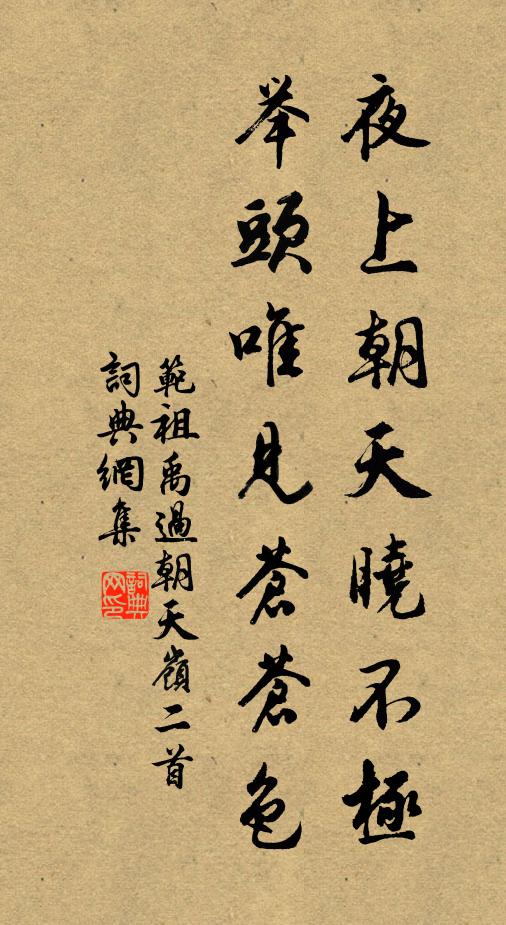 夜上朝天曉不極
举頭唯見蒼蒼色
範祖禹過朝天嶺二首
詞典網集
詞典
网印